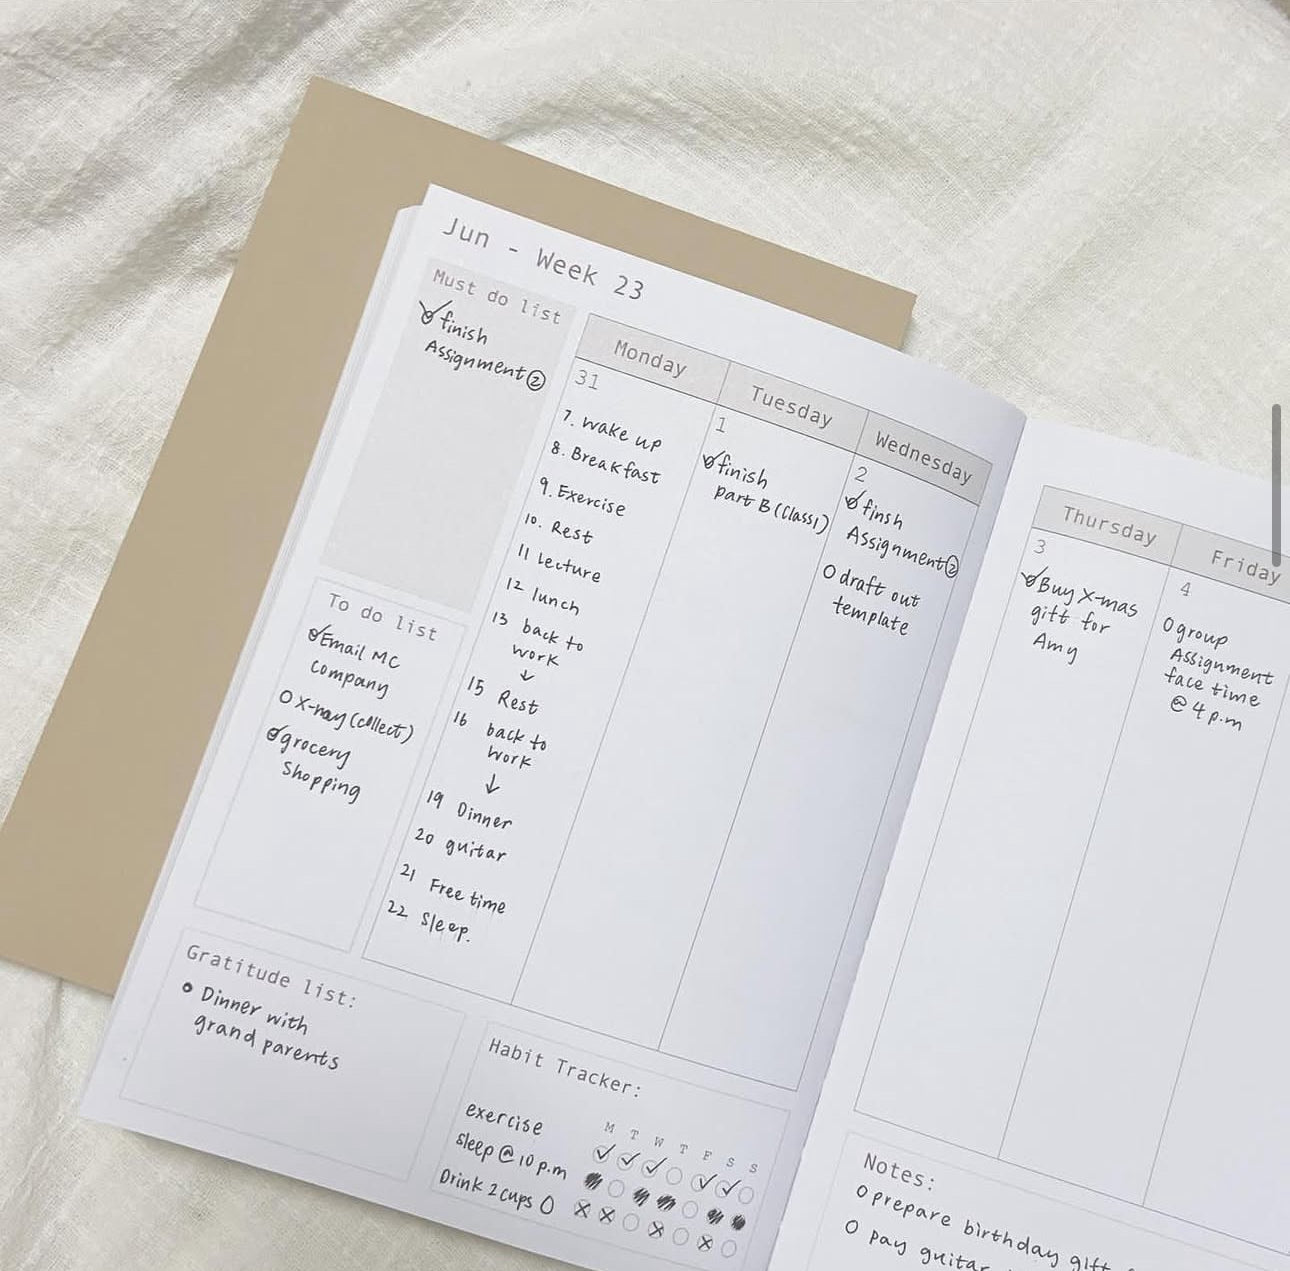 Jun - Week 23
Must do list
finish
Assignment②
To do list
Email MC
company
O X-ray (collect)
grocery
Shopping
Monday
31
7. wake up
8. Breakfast
9. Exercise
10. Rest
11 Lecture
12 lunch
13 back to
work
↓
15 Rest
16 back to
work
↓
19 Dinner
20 guitar
21 Free time
22 Sleep.
Tuesday
1
finish
part B (Class1)
Wednesday
2
finsh
Assignment②
O draft out
template
Thursday
3
Buy X-mas
gift for
Amy
Friday
4
O group
Assignment
face time
@ 4 p.m
Gratitude list:
Dinner with
grand parents
Habit Tracker:
M T W T F S S
exercise
sleep @ 10 p.m
Drink 2 cups
Notes:
O prepare birthday gift
O pay guitar